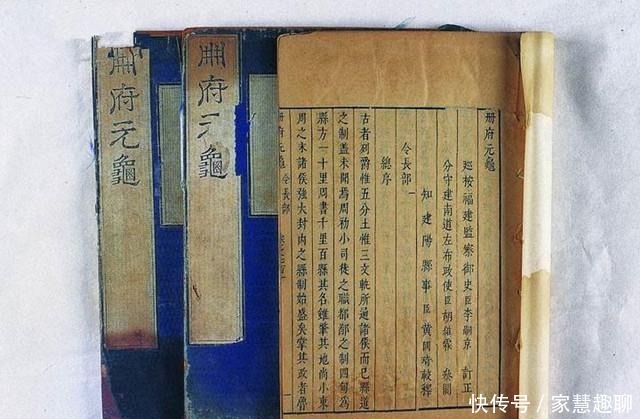 冊府元龜
巡按福建監察御史臣李嗣京 訂正
分守建南道左布政使臣胡維霖 叅閱
知建陽縣事臣黃國琦較釋
令長部 一
總序
古者列爵惟五分土惟三文軌所通諸侯而已縣道
之制蓋未聞焉周礼小司徒之職都鄙之制四甸爲
縣方二十里周書千里百縣其名雖肇其地尚小東
周之末諸侯強大封内之縣制始盛矣掌其政者魯
冊府元龜 令長部
冊府元龜
冊府元龜
快传号/家慧趣聊